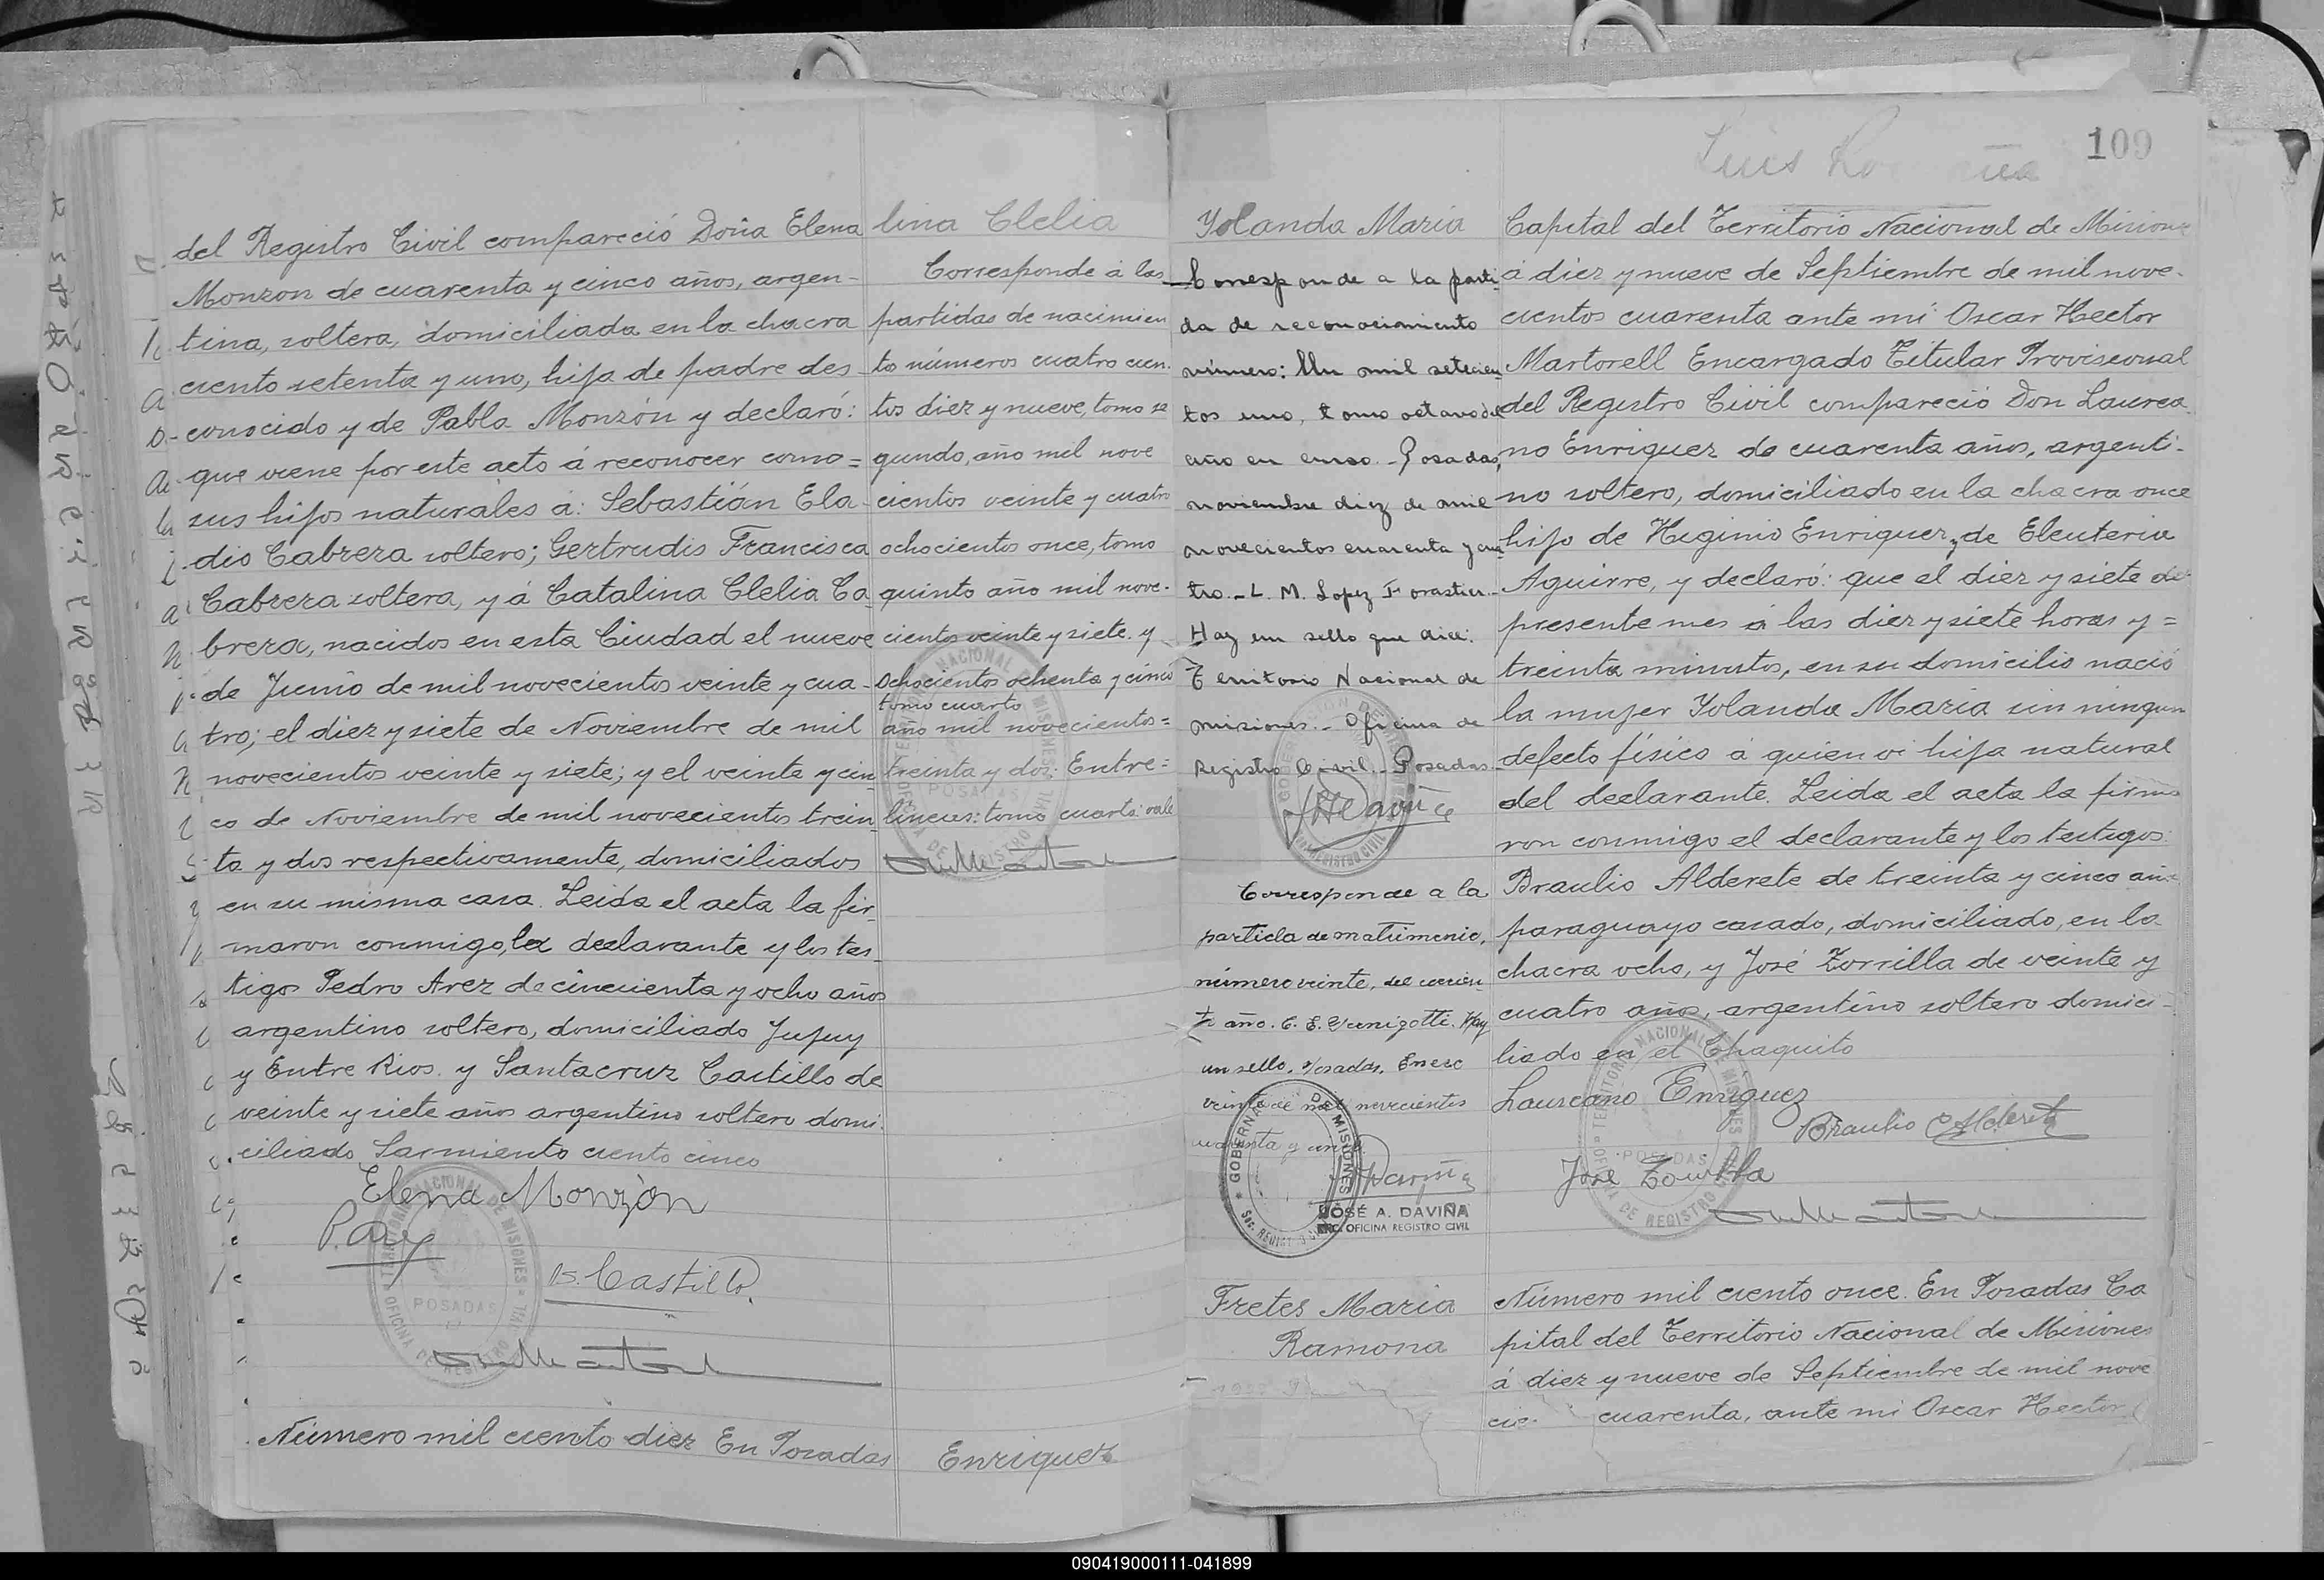 del Registro Civil compareció Doña Elena
Monzon de cuarenta y cinco años, argen-
tina, soltera, domiciliada en la chacra
ciento setenta y uno, hija de padre des-
conocido y de Pabla Monzón y declaró:
que viene por este acto á reconocer como=
sus hijos naturales á: Sebastián Ela-
dio Cabrera soltero; Gertrudis Francisca
Cabrera soltera, y á Catalina Clelia Ca-
brera, nacidos en esta Ciudad el nueve
de Junio de mil novecientos veinte y cua-
tro; el diez y siete de Noviembre de mil
novecientos veinte y siete; y el veinte y cin
co de Noviembre de mil novecientos trein
ta y dos respectivamente, domiciliados
en su misma casa. Leida el acta la fir-
maron conmigo, la declarante y los tes-
tigos Pedro Arez de cincuenta y ocho años
argentino soltero, domiciliado Jujuy
y Entre Rios. y Santacruz Castillo de
veinte y siete años argentino soltero domi-
ciliado Sarmiento ciento cinco
Elena Monzòn
S. Castillo.
POSADAS
Número mil ciento diez En Posadas
lina Clelia
Corresponde á las
partidas de nacimien
to números cuatro cien-
tos diez y nueve, tomo se
gundo, año mil nove
cientos veinte y cuatro
ochocientos once, tomo
quinto año mil nove-
cientos veinte y siete. y
ochocientos ochenta y cinco
tomo cuarto
año mil novecientos=
treinta y dos. Entre=
lineas: tomo cuarto: vale
POSADAS
Enriquez
109
Luis
Yolanda Maria
Corresponde a la parti-
da de reconocimiento
número: Un mil setecien-
tos uno, tomo octavo del
año en curso.- Posadas,
noviembre diez de mil
novecientos cuarenta y cua-
tro.- L. M. Lopez Forastier.-
Hay un sello que dice:
Territorio Nacional de
misiones.- Oficina de
Registro Civil.- Posadas.
Corresponde a la
partida de matrimonio,
número veinte, del corrien-
te año. Hay
un sello. Posadas, Enero
veinte de mil novecientos
cuarenta y cinco
JOSÉ A. DAVIÑA
ENC. OFICINA REGISTRO CIVIL
Capital del Territorio Nacional de Misiones
á diez y nueve de Septiembre de mil nove-
cientos cuarenta ante mi Oscar Hector
Martorell Encargado Titular Provisional
del Registro Civil compareció Don Laurea
no Enriquez de cuarenta años, argenti-
no soltero, domiciliado en la chacra once
hijo de Higinio Enriquez y de Eleuteria
Aguirre, y declaró: que el diez y siete del
presente mes á las diez y siete horas y=
treinta minutos, en su domicilio nació
la mujer Yolanda Maria sin ningun
defecto físico á quien vi hija natural
del declarante. Leida el acta la firma
ron conmigo el declarante y los testigos:
Braulio Alderete de treinta y cinco años
paraguayo casado, domiciliado, en la
chacra ocho, y José Zorrilla de veinte y
cuatro años, argentino soltero domici-
liado en el Chaquito
Laureano Enriquez
Braulio Alderete
José Zorrilla
POSADAS
Fretes Maria
Ramona
Número mil ciento once. En Posadas Ca
pital del Territorio Nacional de Misiones
á diez y nueve de Septiembre de mil nove
cuarenta, ante mi Oscar Hector
090419000111-041899